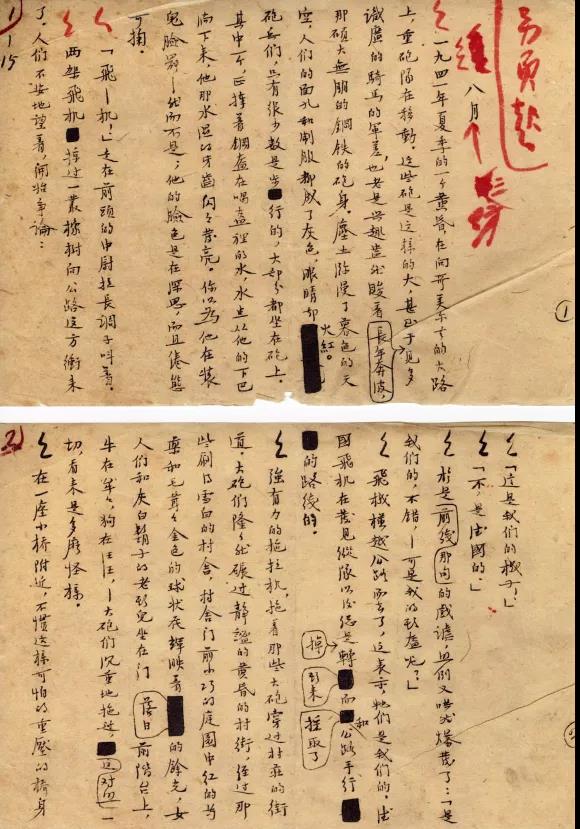 另页起
八月
一九四一年夏季的一个黄昏，在向哥美尔去的大路
上，重砲队在移動。这些砲是这樣的大，甚至于見多
識廣的騎馬的軍差，也老是興趣盎然睃着長年奔波，
那碩大無朋的鋼铁的砲身。塵土弥漫了暮色的天
空，人們的面孔和制服都成了灰色，眼睛却火紅。
砲兵們，只有很少数是步行的，大部分都坐在砲上。
其中一个，正捧着鋼盔在喝盔裡的水，水点从他的下巴
滴下来，他那水湿的牙齒闪々發亮。你以為他在装
鬼臉罢—然而不是；他的臉色是在深思，而且倦態
可掬。
「飛—机！」走在前頭的中尉拉長調子叫着。
两架飛机掠过一叢橡樹向公路这方衝来
了。人們不安地望着，開始争論：
1
15
①
「这是我們的機子！」
「不，是法國的。」
於是前綫那句的戲謔，立刻又哄然爆發了：「是
我們的，不錯，—可是我的鋼盔呢？」
飛機横越公路而去了，这表示，牠們是我們的。
國飛机在發見縱隊以後总是轉而和公路平行
掉 到来 採取了
的路綫的。
強有力的拖拉机，拖着那些大砲穿过村莊的街
道。大砲們隆々然碾过静謐的黄昏的村街，经过那
些刷得雪白的村舍，村舍門前小巧的庭園中紅的芍
藥和毛茸々金色的球状花輝映着落日的餘光，女
人們和灰白鬍子的老頭兒坐在門前階台上，
牛在牟々，狗在汪汪，—大砲們沉重地拖过，这对照一
切，看来是多麽怪樣。
在一座小桥附近，不慣这樣可怕的重壓的橋身